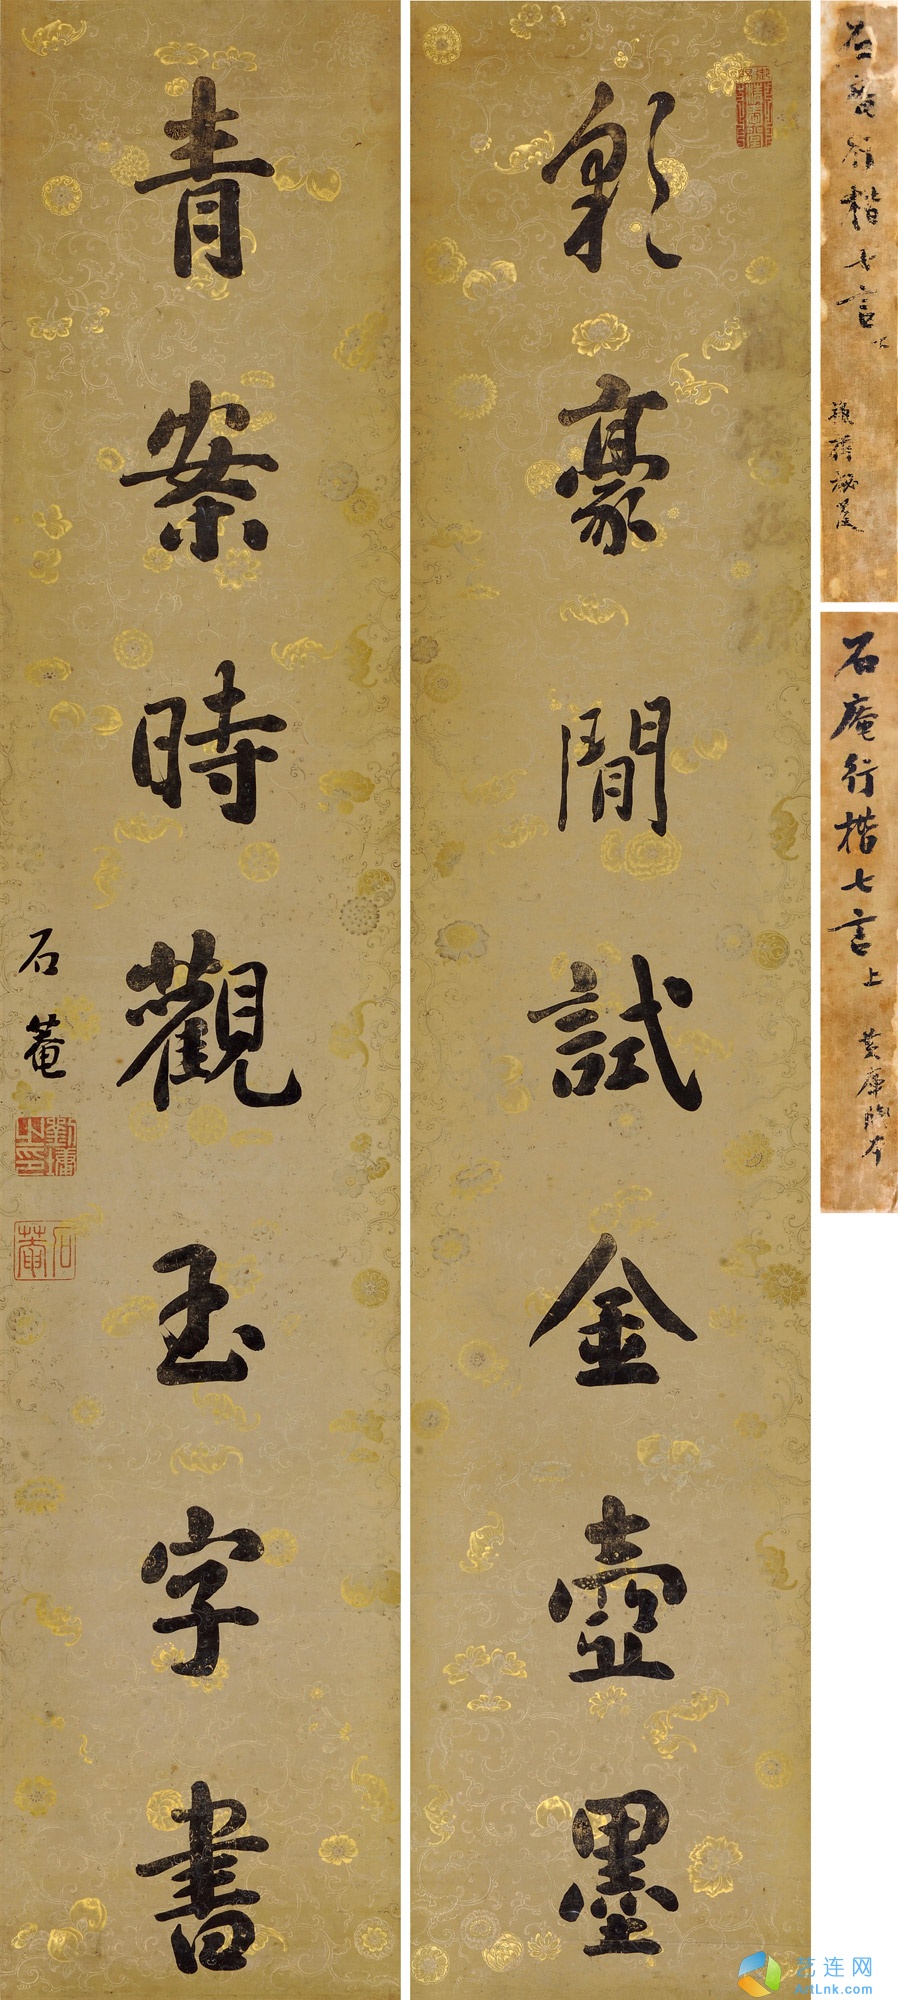 彩豪閒試金壺墨
青案時觀玉字書
石菴
劉墉之印
石菴
石庵行楷七言 下
石庵行楷七言 上
艺连网
ArtLnk.com